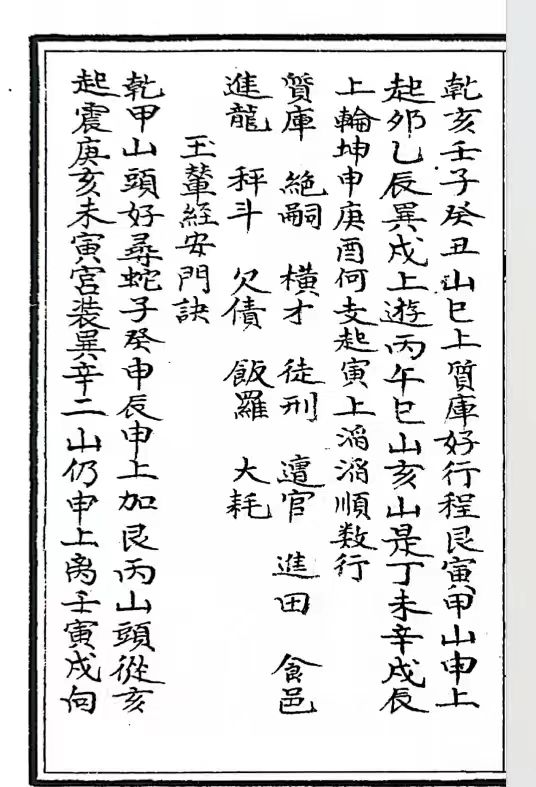 乾亥壬子癸丑山巳上質庫好行程艮寅甲山申上
起夘乙辰巽戍上遊丙午巳山亥山是丁未辛戍辰
上輪坤申庚酉何支起寅上滔滔順数行
質庫 絶嗣 横才 徒刑 遭官 進田 食邑
進龍 秤斗 欠債 飯羅 大耗
玉輦經安門訣
乾甲山頭好尋蛇子癸申辰申上加艮丙山頭從亥
起震庚亥未寅宮装巽辛二山仍申上离壬寅戍向